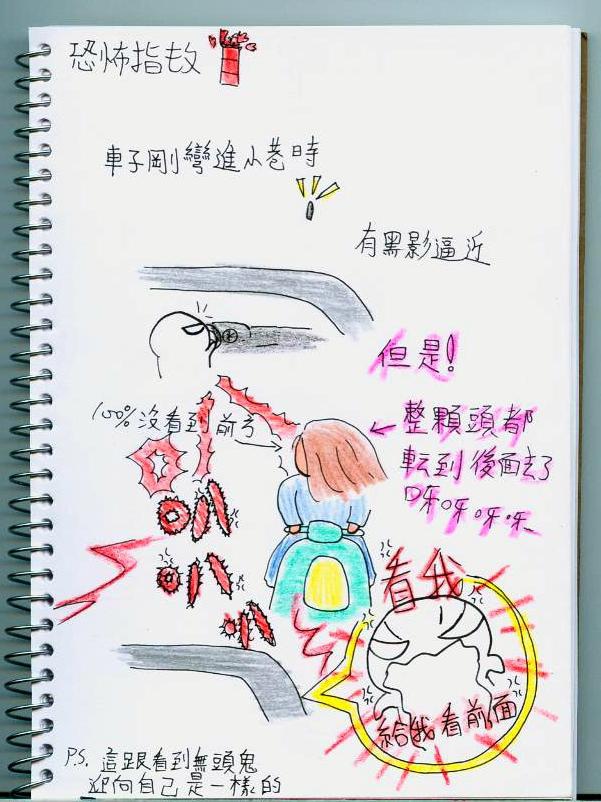 恐怖指攵
車子剛彎進小巷時
有黑影逼近
但是!
100%沒看到前方
整顆頭都
転到後面去了
呀呀呀呀
叭
叭
叭
叭
看我
給我看前面
P.S. 這跟看到無頭鬼
迎向自己是一樣的